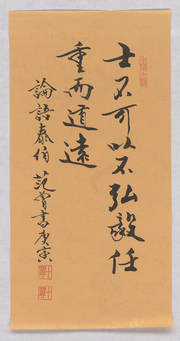 士不可以不弘毅任
重而道遠
論語泰伯 范曾書庚寅